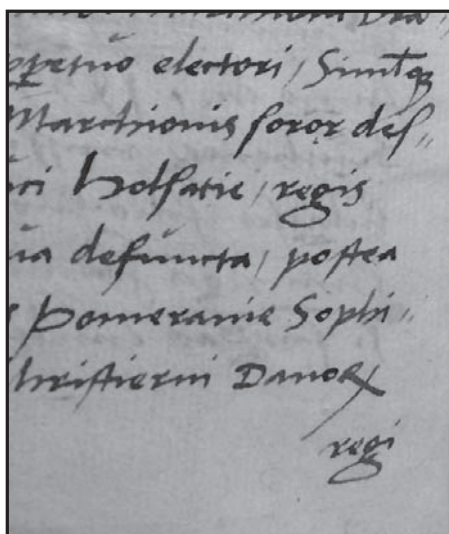 ꝑpetuo electori / Siml̃qꝫ
Marchionis soror def„
uci Holsatie / regis
ua defuncta / postea
Pomeranie Sophi„
hristierni Danoꝝ
regi